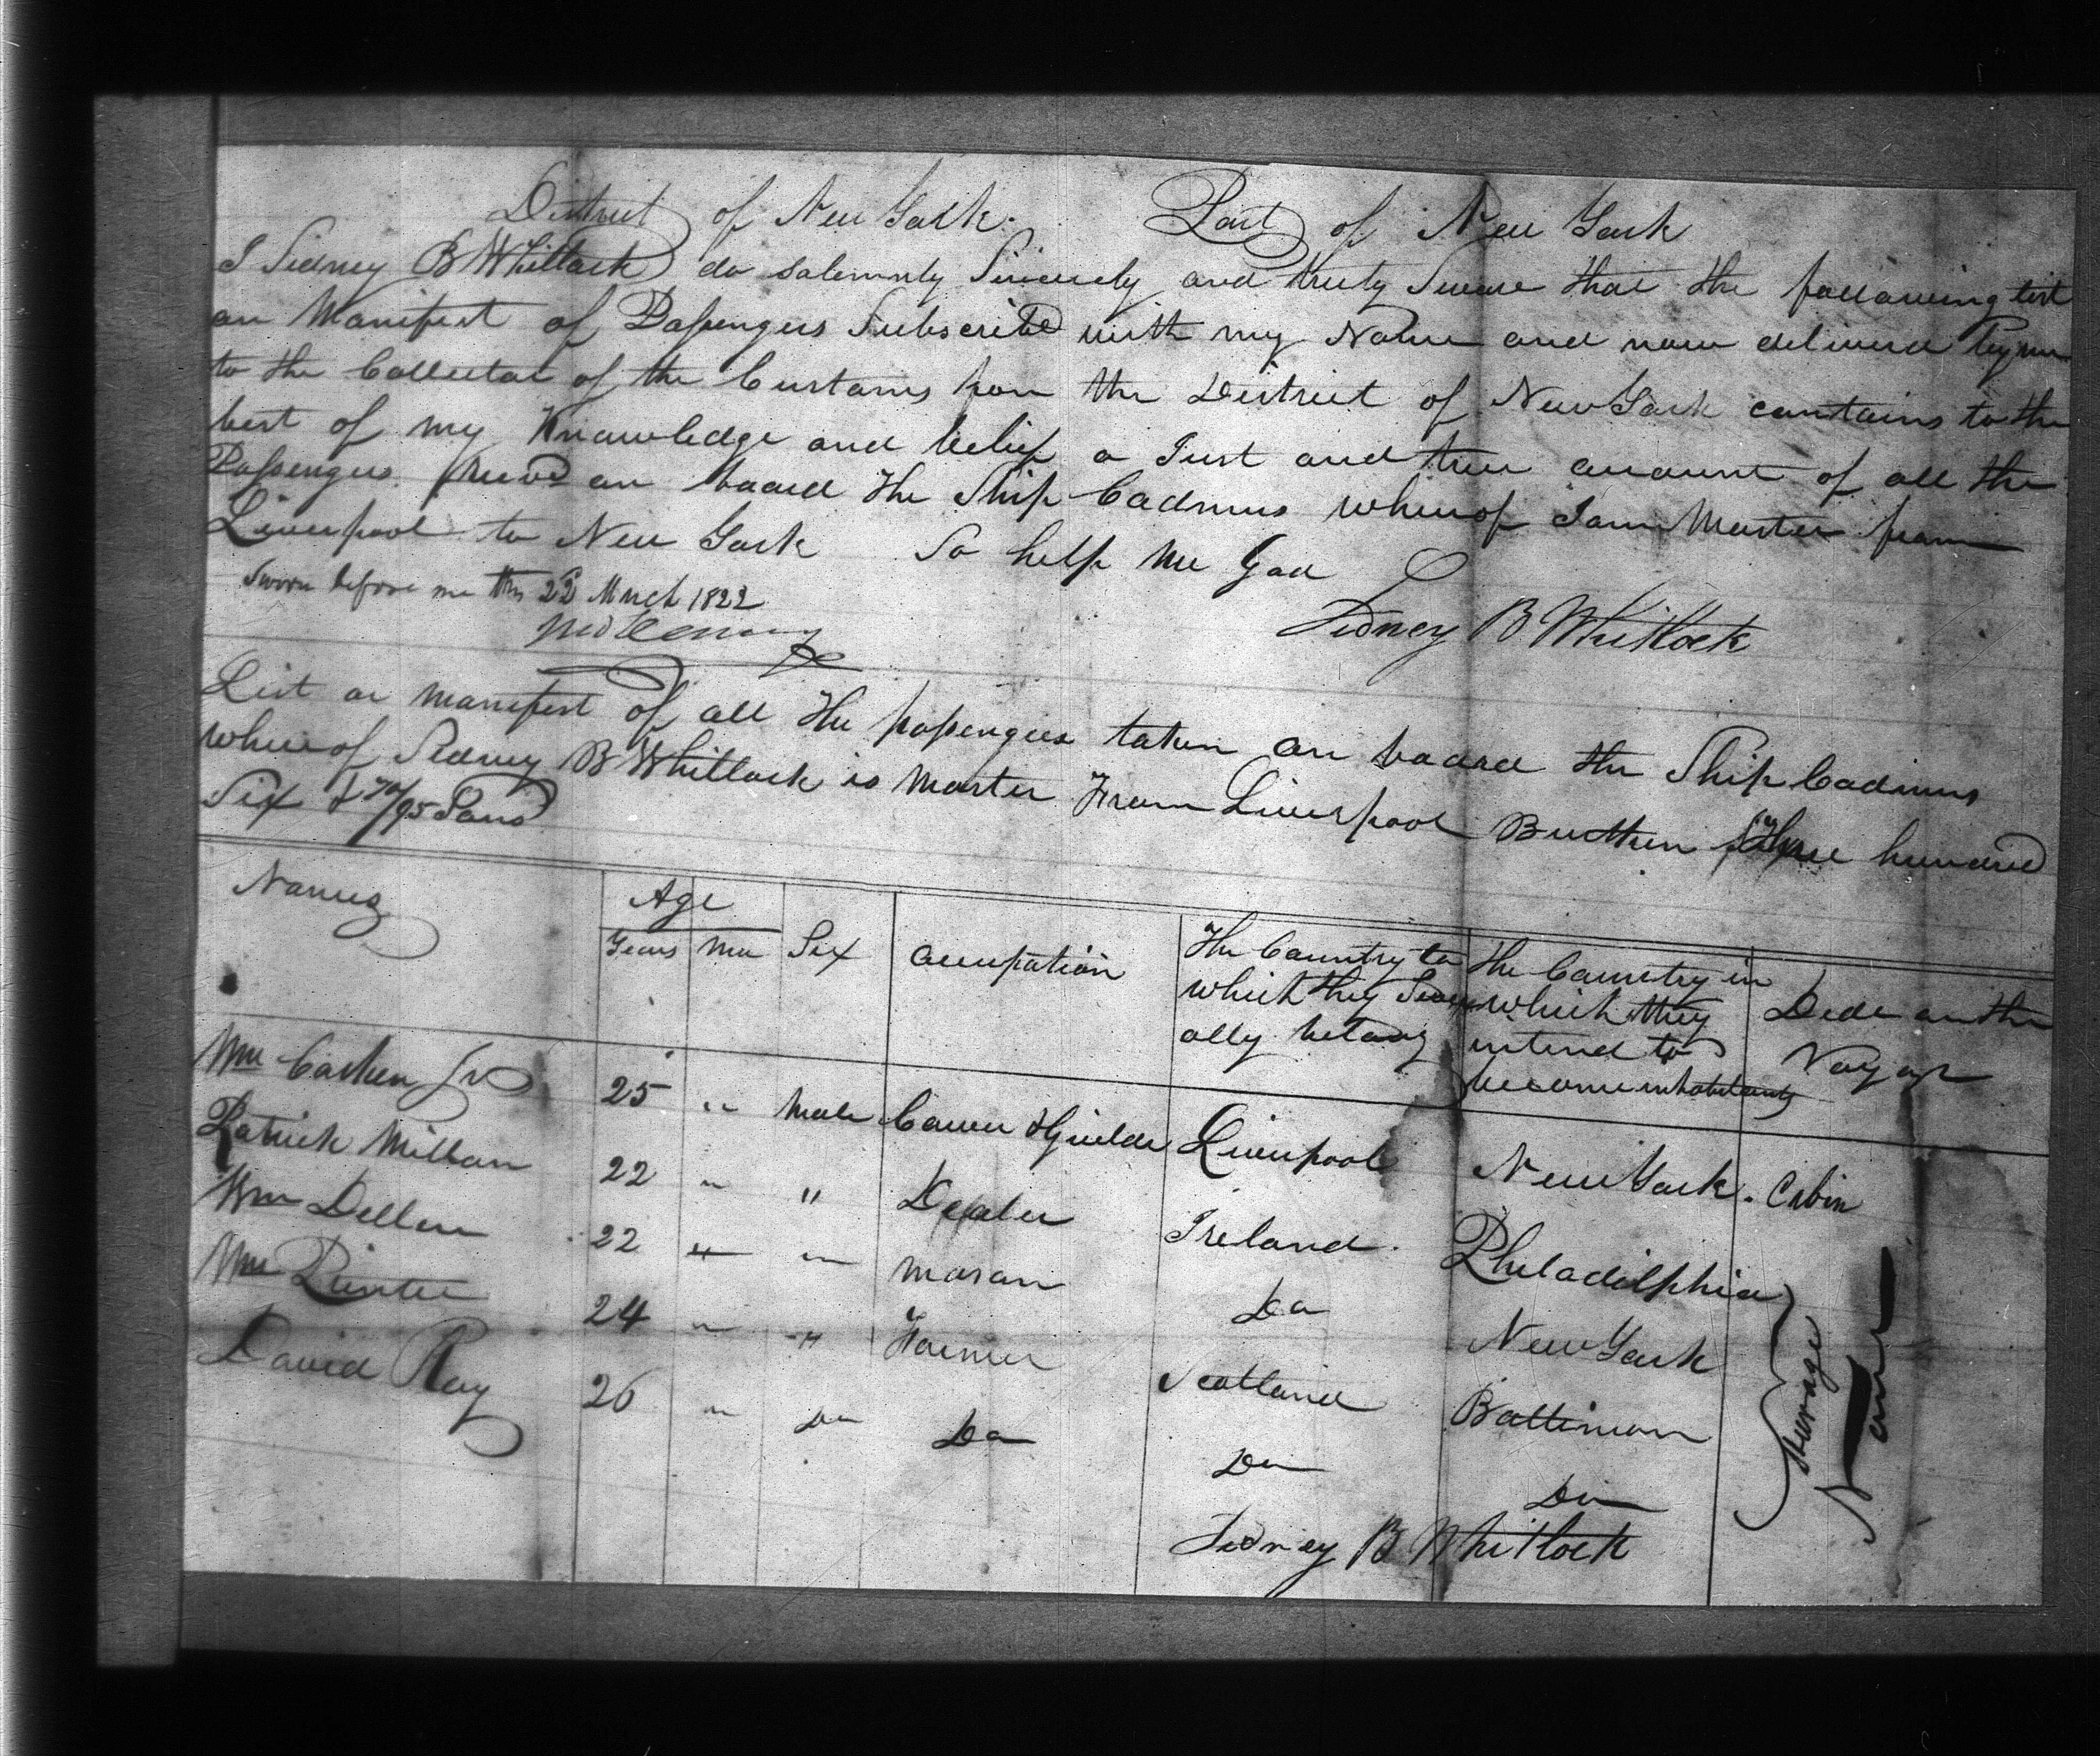 District of New York. Port of New York
I Sidney B Whitlock do solemnly Sincerely and truly Sweare that the following list
or Manifest of Passengers Subscribed with my Name and now delivered by me
to the Collector of the Customs for the District of New York contains to the
best of my Knowledge and belief a Just and true account of all the
Passengers recvd on board the Ship Cadmus whereof I am Master from
Liverpool to New York So help me God
Sworn before me this 22d March 1822
Sidney B Whitlock
List or manifest of all the passengers taken on board the Ship Cadmus
whereof Sidney B Whitlock is Master From Liverpool Burthen Three hundred
Six & 70/95 Tons
Names Age Years Mo Sex Occupation The Country to which they Sever ally belong The Country in which they intend to become inhabitants Dede on the Voyage
Wm Jr 25 " Male Carver & Guilder Liverpool New York. Cabin
Patrick Millan 22 " " Dealer Ireland. Philadelphia
Wm Dellen 22 " " Mason Do New York
Wm 24 " " Farmer Scotland Baltimore
David Ray 26 " Do Do Do Do
Steerage
None
Sidney B Whitlock